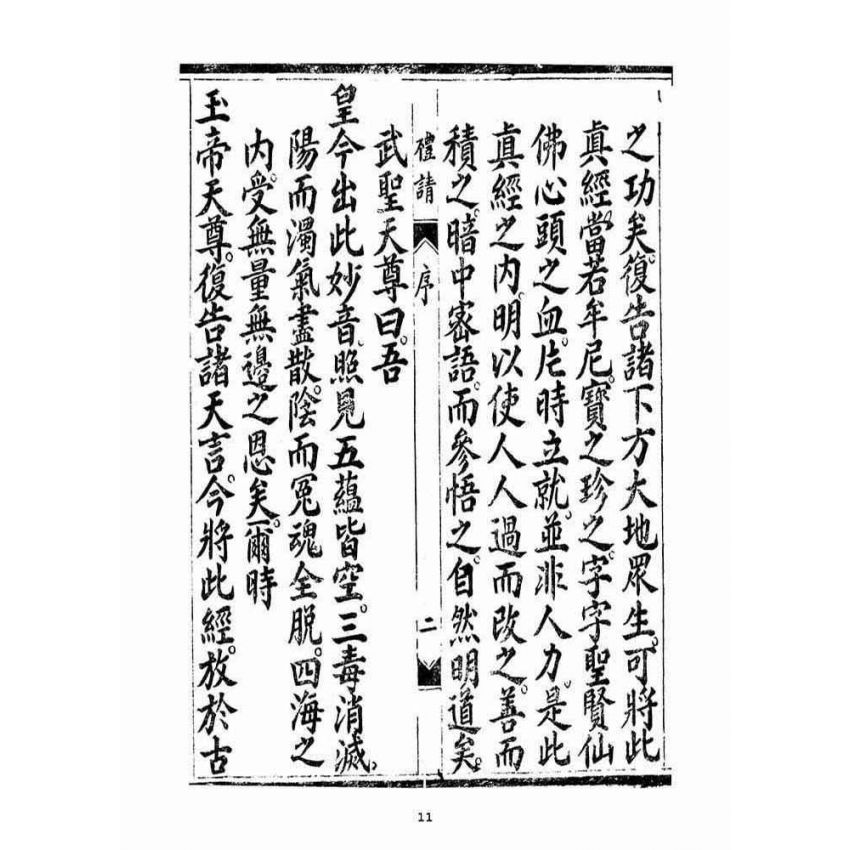 之功矣。復告諸下方大地眾生。可將此
真經。當若牟尼。寶之珍之。字字聖賢仙
佛心頭之血。片時立就。並非人力。是此
真經之內。明以使人人過而改之。善而
積之。暗中密語。而參悟之。自然明道矣。
禮請 序 二
武聖天尊曰。吾
皇今出此妙音。照見五蘊皆空。三毒消滅。
陽而濁氣盡散。陰而冤魂全脫。四海之
內。受無量無邊之恩矣。爾時
玉帝天尊。復告諸天言。今將此經。放於古
11